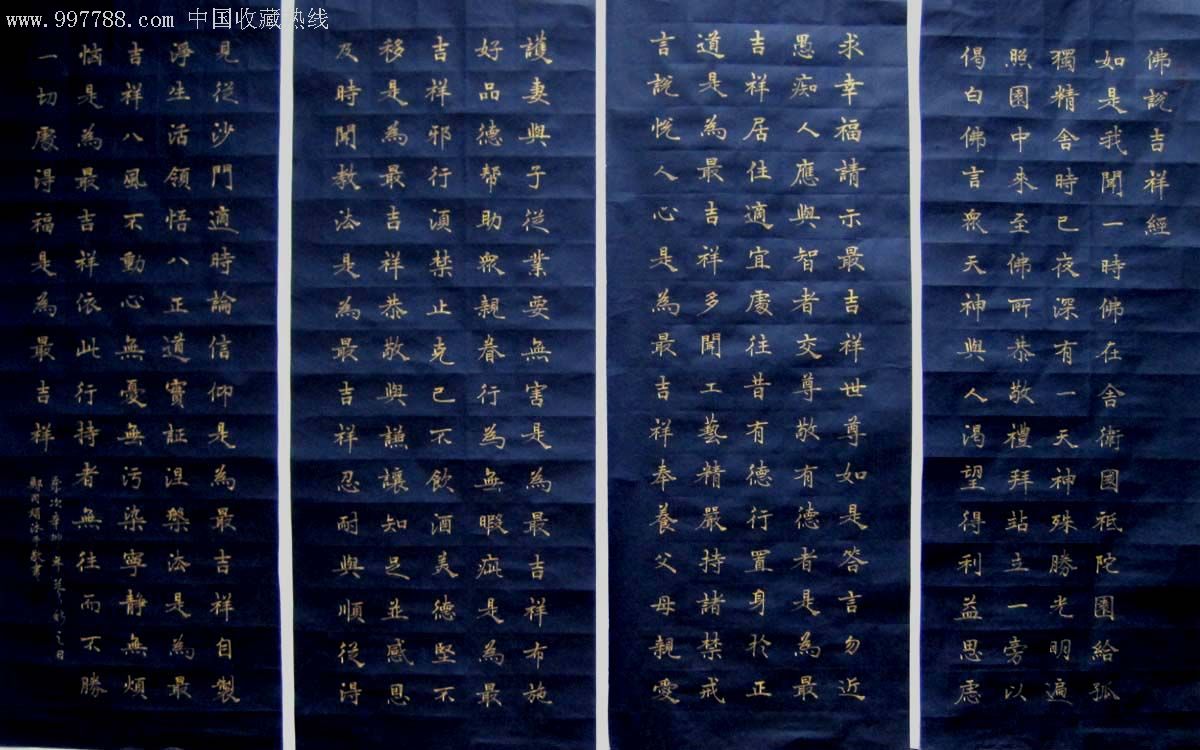 www.997788.com 中国收藏热线
佛說吉祥經
如是我聞一時佛在舍衛國祇陀園給孤
獨精舍時已夜深有一天神殊勝光明遍
照園中來至佛所恭敬禮拜站立一旁以
偈白佛言眾天神與人渴望得利益思慮
求幸福請示最吉祥世尊如是答言勿近
愚痴人應與智者交尊敬有德者是為最
吉祥居住適宜處往昔有德行置身於正
道是為最吉祥多聞工藝精嚴持諸禁戒
言說悅人心是為最吉祥奉養父母親愛
護妻與子從業要無害是為最吉祥布施
好品德帮助眾親眷行為無暇疵是為最
吉祥邪行須禁止克己不飲酒美德堅不
移是為最吉祥恭敬與謙讓知足並感恩
及時聞教法是為最吉祥忍耐與順從得
見從沙門適時論信仰是為最吉祥自製
淨生活領悟八正道實証涅槃法是為最
吉祥八風不動心無憂無污染寧靜無煩
惱是為最吉祥依此行持者無往而不勝
一切處得福是為最吉祥
年 之日